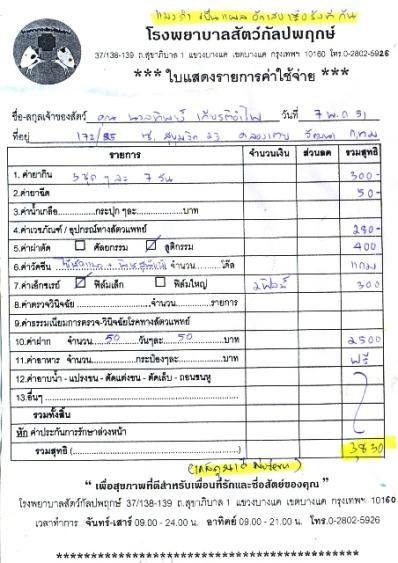 โรงพยาบาลสัตว์กัลปพฤกษ์
37/138-139 ถ.สุขาภิบาล 1 แขวงบางแค เขตบางแค กรุงเทพฯ 10160 โทร.0-2802-5926
*** ใบแสดงรายการค่าใช้จ่าย ***
ชื่อ-สกุลเจ้าของสัตว์ คุณ วันที่ 7 พ.ค 51
ที่อยู่ 172/
รายการ จำนวนเงิน ส่วนลด รวมสุทธิ
1. ค่ายากิน 3 ชุด ๆ ละ 7 วัน 300-
2.ค่ายาฉีด 50-
3.ค่าน้ำเกลือ................กระปุก ๆละ................บาท
4.ค่าเวชภัณฑ์ / อุปกรณ์ทางสัตวแพทย์ 280-
5.ค่าผ่าตัด ศัลยกรรม สูติกรรม 400
6.ค่าวัคซีน จำนวน โด๊ส แถม
7.ค่าเอ็กซเรย์ ฟิล์มเล็ก ฟิล์มใหญ่ 2 ฟิล์ม 300
8.ค่าตรวจวินิจฉัย ................จำนวน................รายการ
9.ค่าธรรมเนียมการตรวจ-วินิจฉัยโรคทางสัตวแพทย์
10.ค่าฝาก จำนวน 50 วันๆละ 50 บาท 2500
11.ค่าอาหาร จำนวน................กระป๋องๆละ................บาท ฟรี
12.ค่าอาบน้ำ - แปรงขน - ตัดแต่งขน - ตัดเล็บ - ถอนขนหู
13.อื่นๆ
รวมทั้งสิ้น
หัก ค่าประกันการรักษาล่วงหน้า
รวมสุทธิ (................................) 3,830
" เพื่อสุขภาพที่ดีสำหรับเพื่อนที่รักและซื่อสัตย์ของคุณ "
โรงพยาบาลสัตว์กัลปพฤกษ์ 37/138-139 ถ.สุขาภิบาล 1 แขวงบางแค เขตบางแค กรุงเทพฯ 10160
เวลาทำการ จันทร์-เสาร์ 09.00 - 24.00 น. อาทิตย์ 09.00 - 21.00 น. โทร.0-2802-5926